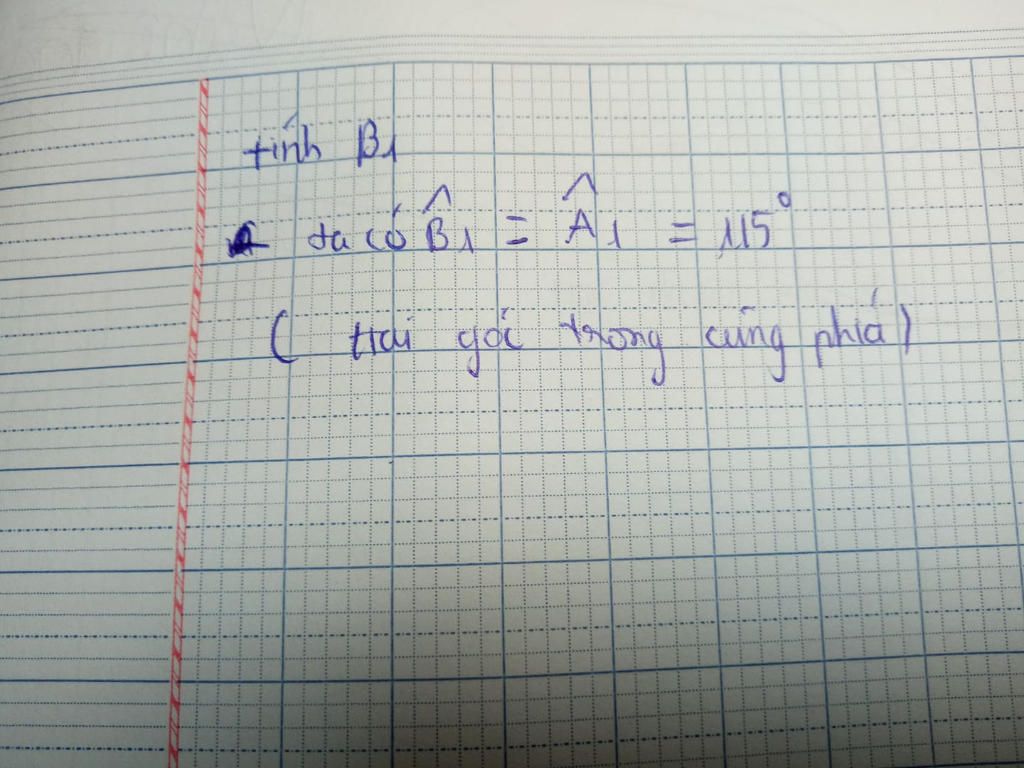 tính B1
ta có B̂1 = Â1 = 115°
( Hai góc trong cùng phía)